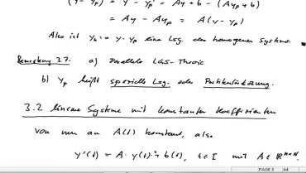 (y - yp)' = y' - yp' = Ay + b - (Ayp + b)
= Ay - Ayp = A(y - yp)
Also ist yh := y - yp eine Lsg. des homogenen Systems.
Bemerkung 3.7. a)
b) yp heißt spezielle Lsg. oder Partikulärlösung.
3.2 lineare Systeme mit konstanten Koeffizienten
von nun an A(t) konstant, also
y'(t) = A · y(t) + b(t), t∈I mit A∈ℝ